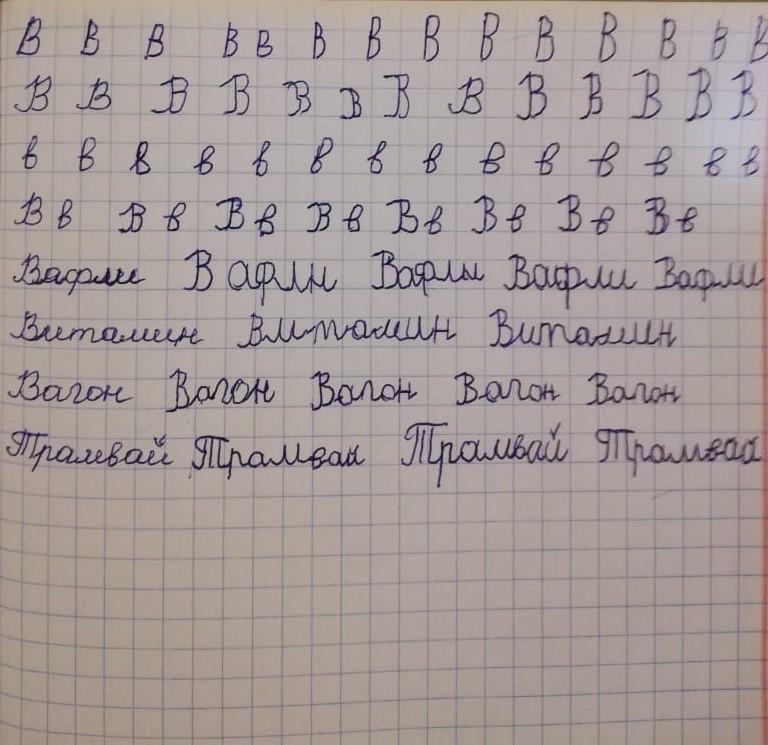 В В В В В В В В В В В В В В
В В В В В В В В В В В В В
в в в в в в в в в в в в в в
В в В в В в В в В в В в В в В в
Вафли Вафли Вафли Вафли Вафли
Витамин Витамин Витамин
Вагон Вагон Вагон Вагон Вагон
Трамвай Трамваи Трамвай Трамваи